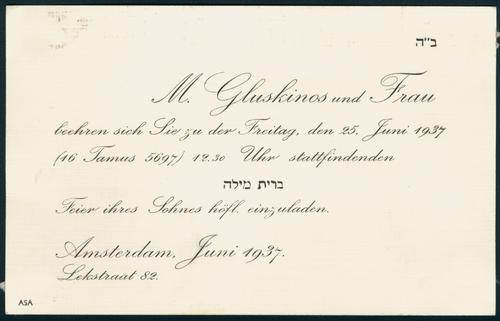 ב״ה
M. Gluskinos und Frau
beehren sich Sie zu der Freitag, den 25. Juni 1937
(16 Tamus 5697) 12.30 Uhr stattfindenden
ברית מילה
Feier ihres Sohnes höfl. einzuladen.
Amsterdam, Juni 1937.
Lekstraat 82.
ASA